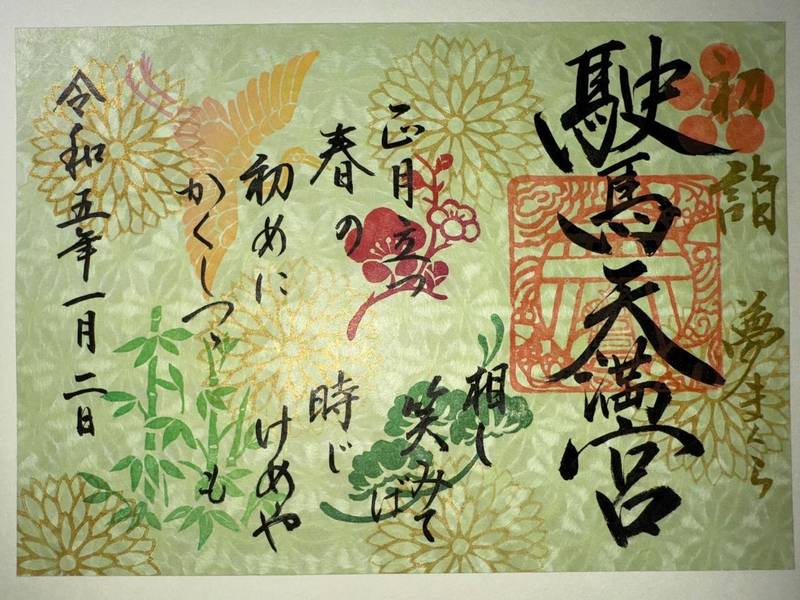 初詣 夢まくら
駛馬天満宮
正月立つ
春の
初めに
かくしつゝ
相し
笑みて
ば
時じ
けめや
も
令和五年一月二日